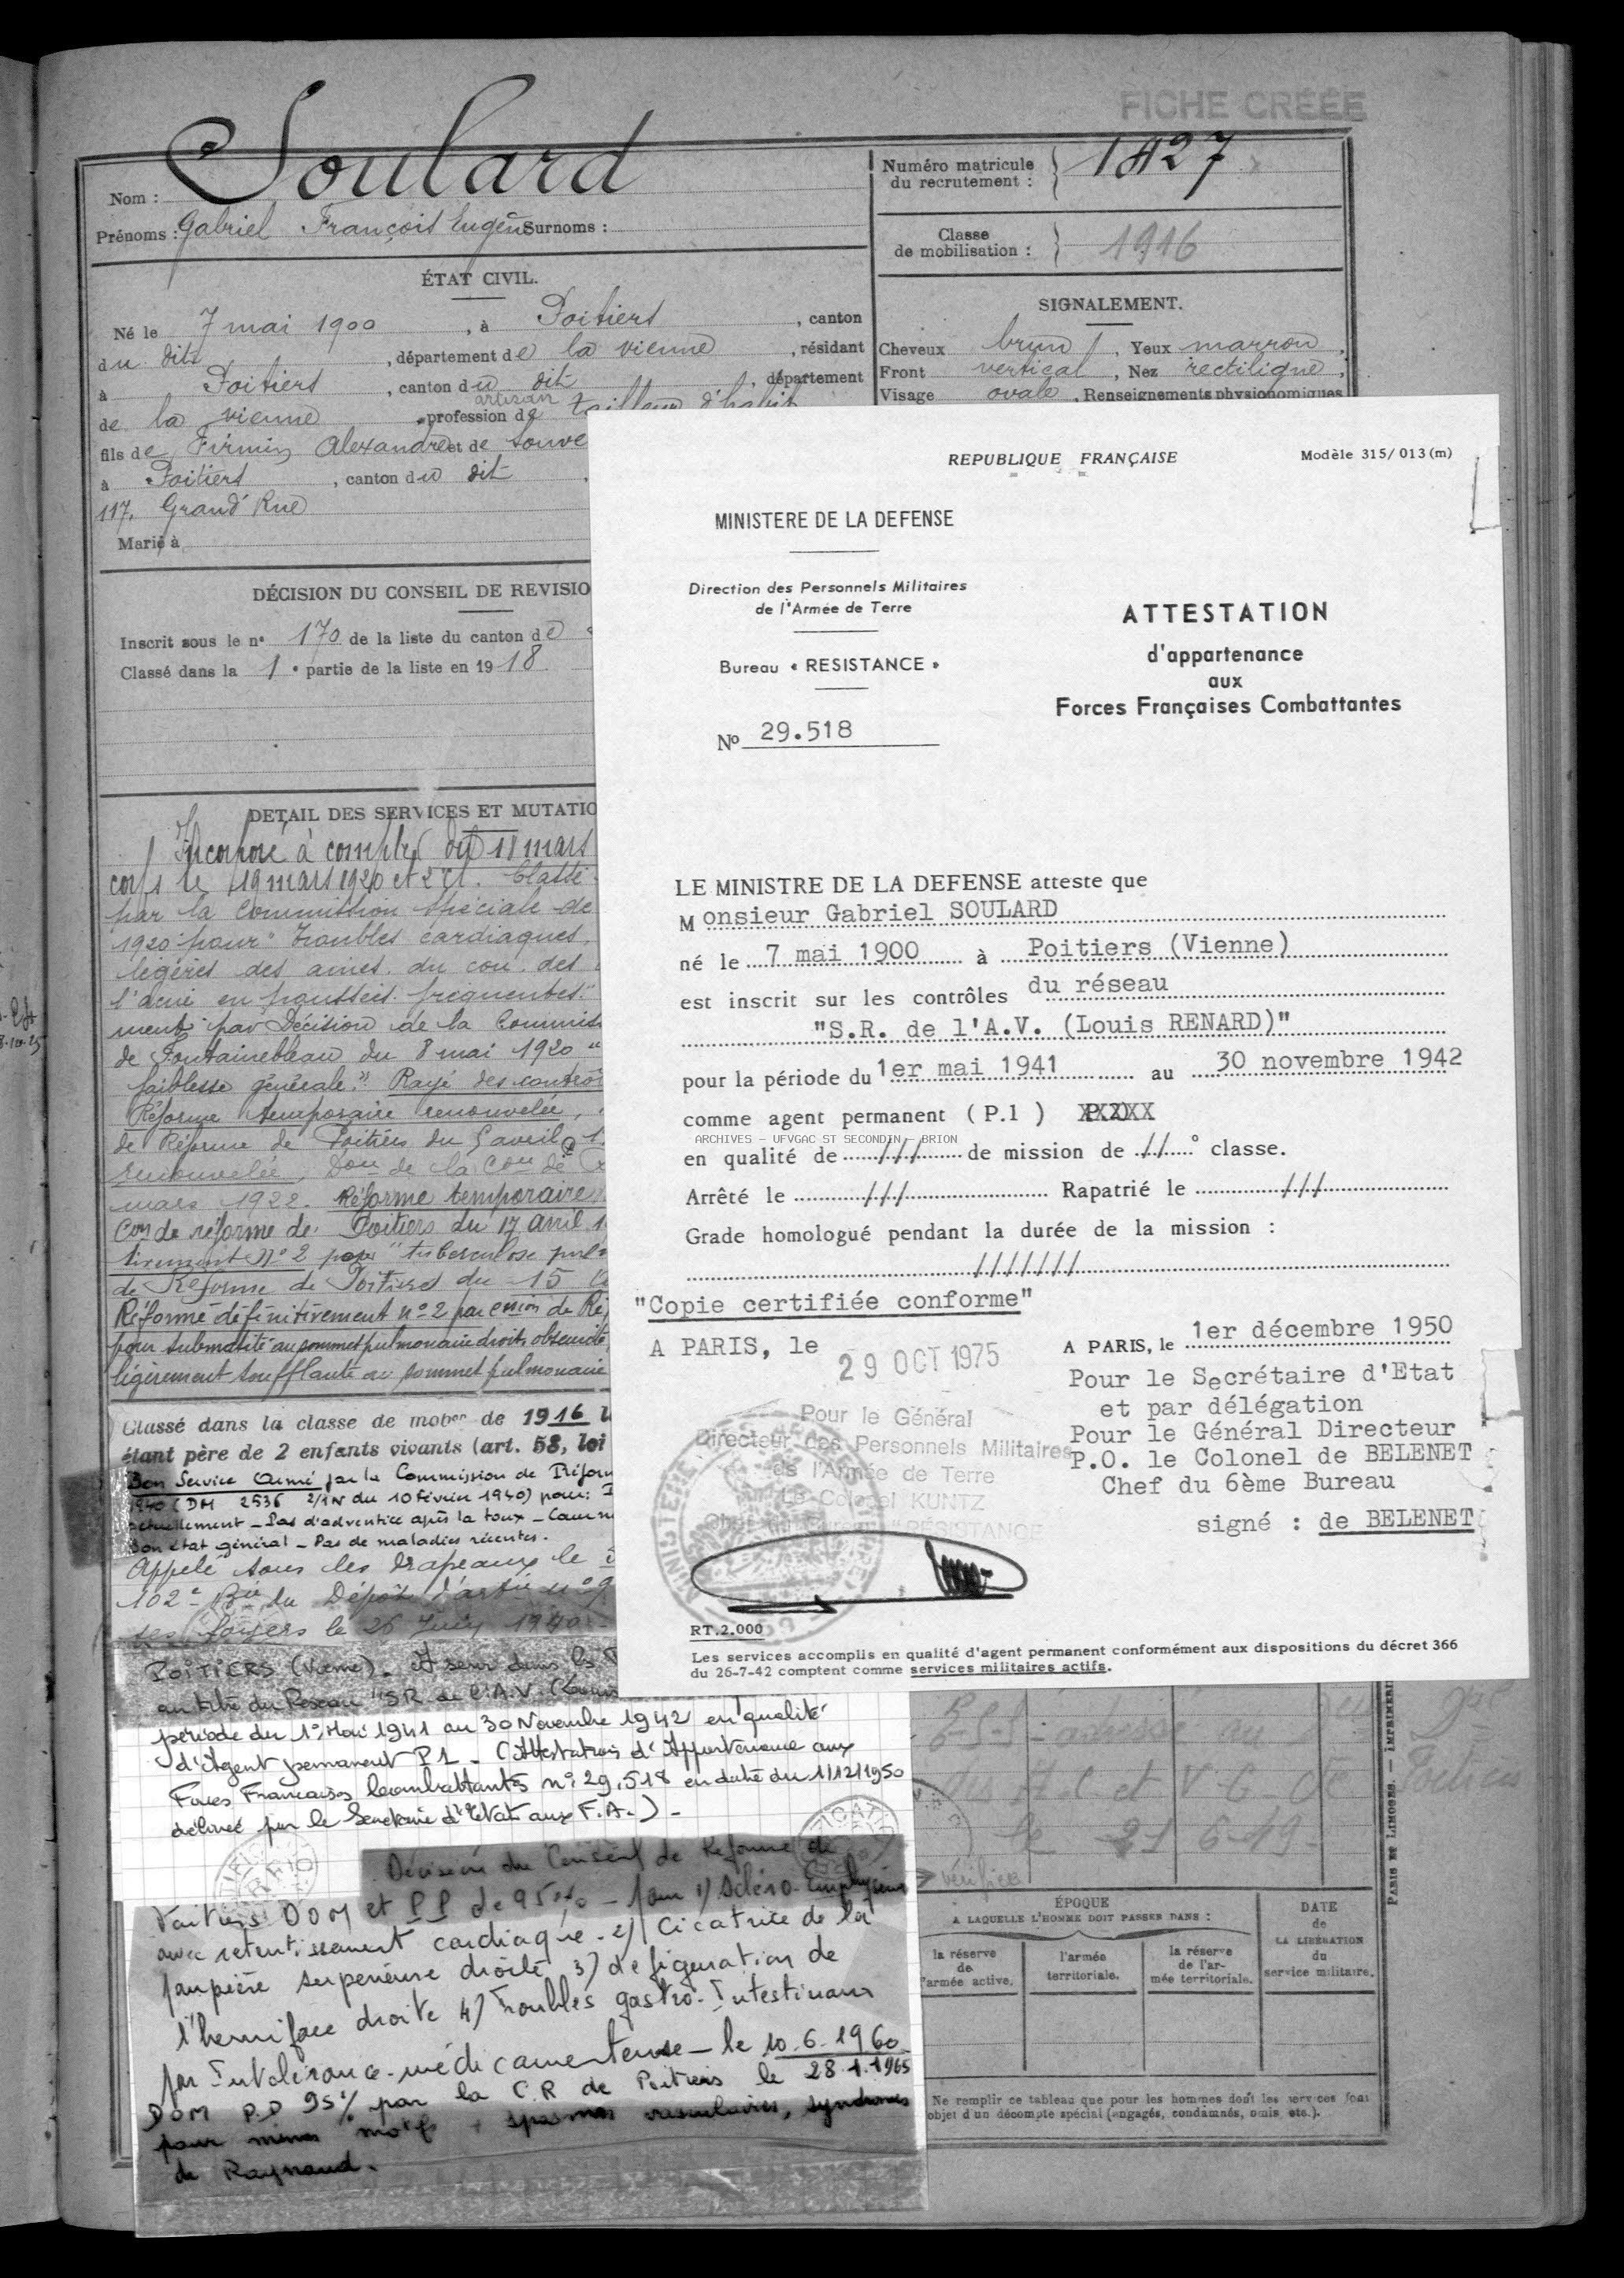 FICHE CRÉÉE
Nom : Soulard
Prénoms : Gabriel François Eugène Surnoms :
Numéro matricule
du recrutement :
1427
Classe
de mobilisation :
1916
ÉTAT CIVIL.
Né le 7 mai 1900, à Poitiers, canton
du dit, département de la vienne, résidant
à Poitiers, canton du dit, département
artisan
de la vienne, profession de tailleur d'habits
fils de Firmin Alexandre et de Souve
à Poitiers, canton du dit
117, Grand'Rue
Marié à
SIGNALEMENT.
Cheveux brun, Yeux marron,
Front vertical, Nez rectiligne,
Visage ovale, Renseignements physionomiques
DÉCISION DU CONSEIL DE REVISIO
Inscrit sous le n° 170 de la liste du canton de
Classé dans la 1e partie de la liste en 1918
DETAIL DES SERVICES ET MUTATIO
Incorporé à compter du 18 mars
corps le 19 mars 1920 et 2e cl. Classé
par la Commission spéciale de
1920 pour "troubles cardiaques,
légères des aines, du cou, des
l'acné en poussées fréquentes."
ment par Décision de la Commis
de Fontainebleau du 8 mai 1920 "
faiblesse générale." Rayé des contrô
Réforme temporaire renouvelée,
de Réforme de Poitiers du 5 avril 1
renouvelée, Don de la Con de
mars 1922. Réforme temporaire
Con de réforme de Poitiers du 17 avril 1
tivement N° 2 pour "tuberculose pul
de Réforme de Poitiers du 15
Réformé définitivement n° 2 par Cmion de Ré
pour submatité au sommet pulmonaire droit, obscurité
légèrement soufflante au sommet pulmonaire
Classé dans la classe de mobon de 1916
étant père de 2 enfants vivants (art. 58, loi
Bon Service Armé par la Commission de Réform
1940 (DM 2536 2/1N du 10 Février 1940) pour:
actuellement - Pas d'adventice après la toux -
Bon état général - Pas de maladies récentes.
Appelé sous les drapeaux le
102e Bie du Dépôt d'artie n° 9
ses foyers le 26 Juin 1940
POITIERS (Vienne). A servi dans les
au titre du Réseau "SR de l'A.V. (Louis
période du 1° Mai 1941 au 30 Novembre 1942 en qualité
d'Agent permanent P1 - (Attestation d'Appartenance aux
Forces Françaises Combattantes n° 29.518 en date du 1/12/1950
délivrée par le Secrétaire d'Etat aux F.A.) -
Décision du Conseil de Réforme de
Poitiers DOM et PP de 95% - pour 1) Scléro-Emphysème
avec retentissement cardiaque - 2) Cicatrice de la
paupière supérieure droite 3) défiguration de
l'hemiface droite 4) Troubles gastro-Intestinaux
par Intolérance médicamenteuse - le 10.6.1960
DOM P.D 95% par la C.R de Poitiers le 28.1.1965
pour mêmes motifs + spasmes vasculaires, syndromes
de Raynaud.
REPUBLIQUE FRANÇAISE
Modèle 315/013(m)
MINISTERE DE LA DEFENSE
Direction des Personnels Militaires
de l'Armée de Terre
Bureau « RESISTANCE »
No 29.518
ATTESTATION
d'appartenance
aux
Forces Françaises Combattantes
LE MINISTRE DE LA DEFENSE atteste que
Monsieur Gabriel SOULARD
né le 7 mai 1900 à Poitiers (Vienne)
est inscrit sur les contrôles du réseau
"S.R. de l'A.V. (Louis RENARD)"
pour la période du 1er mai 1941 au 30 novembre 1942
comme agent permanent (P.1)
ARCHIVES – UFVGAC ST SECONDIN – BRION
en qualité de /// de mission de //° classe.
Arrêté le /// Rapatrié le ///
Grade homologué pendant la durée de la mission :
///////
"Copie certifiée conforme"
A PARIS, le 29 OCT 1975
Pour le Général
Directeur des Personnels Militaires
de l'Armée de Terre
Le Colonel KUNTZ
Chef du Bureau "RÉSISTANCE
A PARIS, le 1er décembre 1950
Pour le Secrétaire d'Etat
et par délégation
Pour le Général Directeur
P.O. le Colonel de BELENET
Chef du 6ème Bureau
signé : de BELENET
RT.2.000
Les services accomplis en qualité d'agent permanent conformément aux dispositions du décret 366
du 26-7-42 comptent comme services militaires actifs.
vérifiée
ÉPOQUE
A LAQUELLE L'HOMME DOIT PASSER DANS :
DATE
de
LA LIBÉRATION
du
service militaire.
la réserve
de
l'armée active.
l'armée
territoriale.
la réserve
de l'ar-
mée territoriale.
Ne remplir ce tableau que pour les hommes dont les services font
objet d'un décompte spécial (engagés, condamnés, omis, etc.).